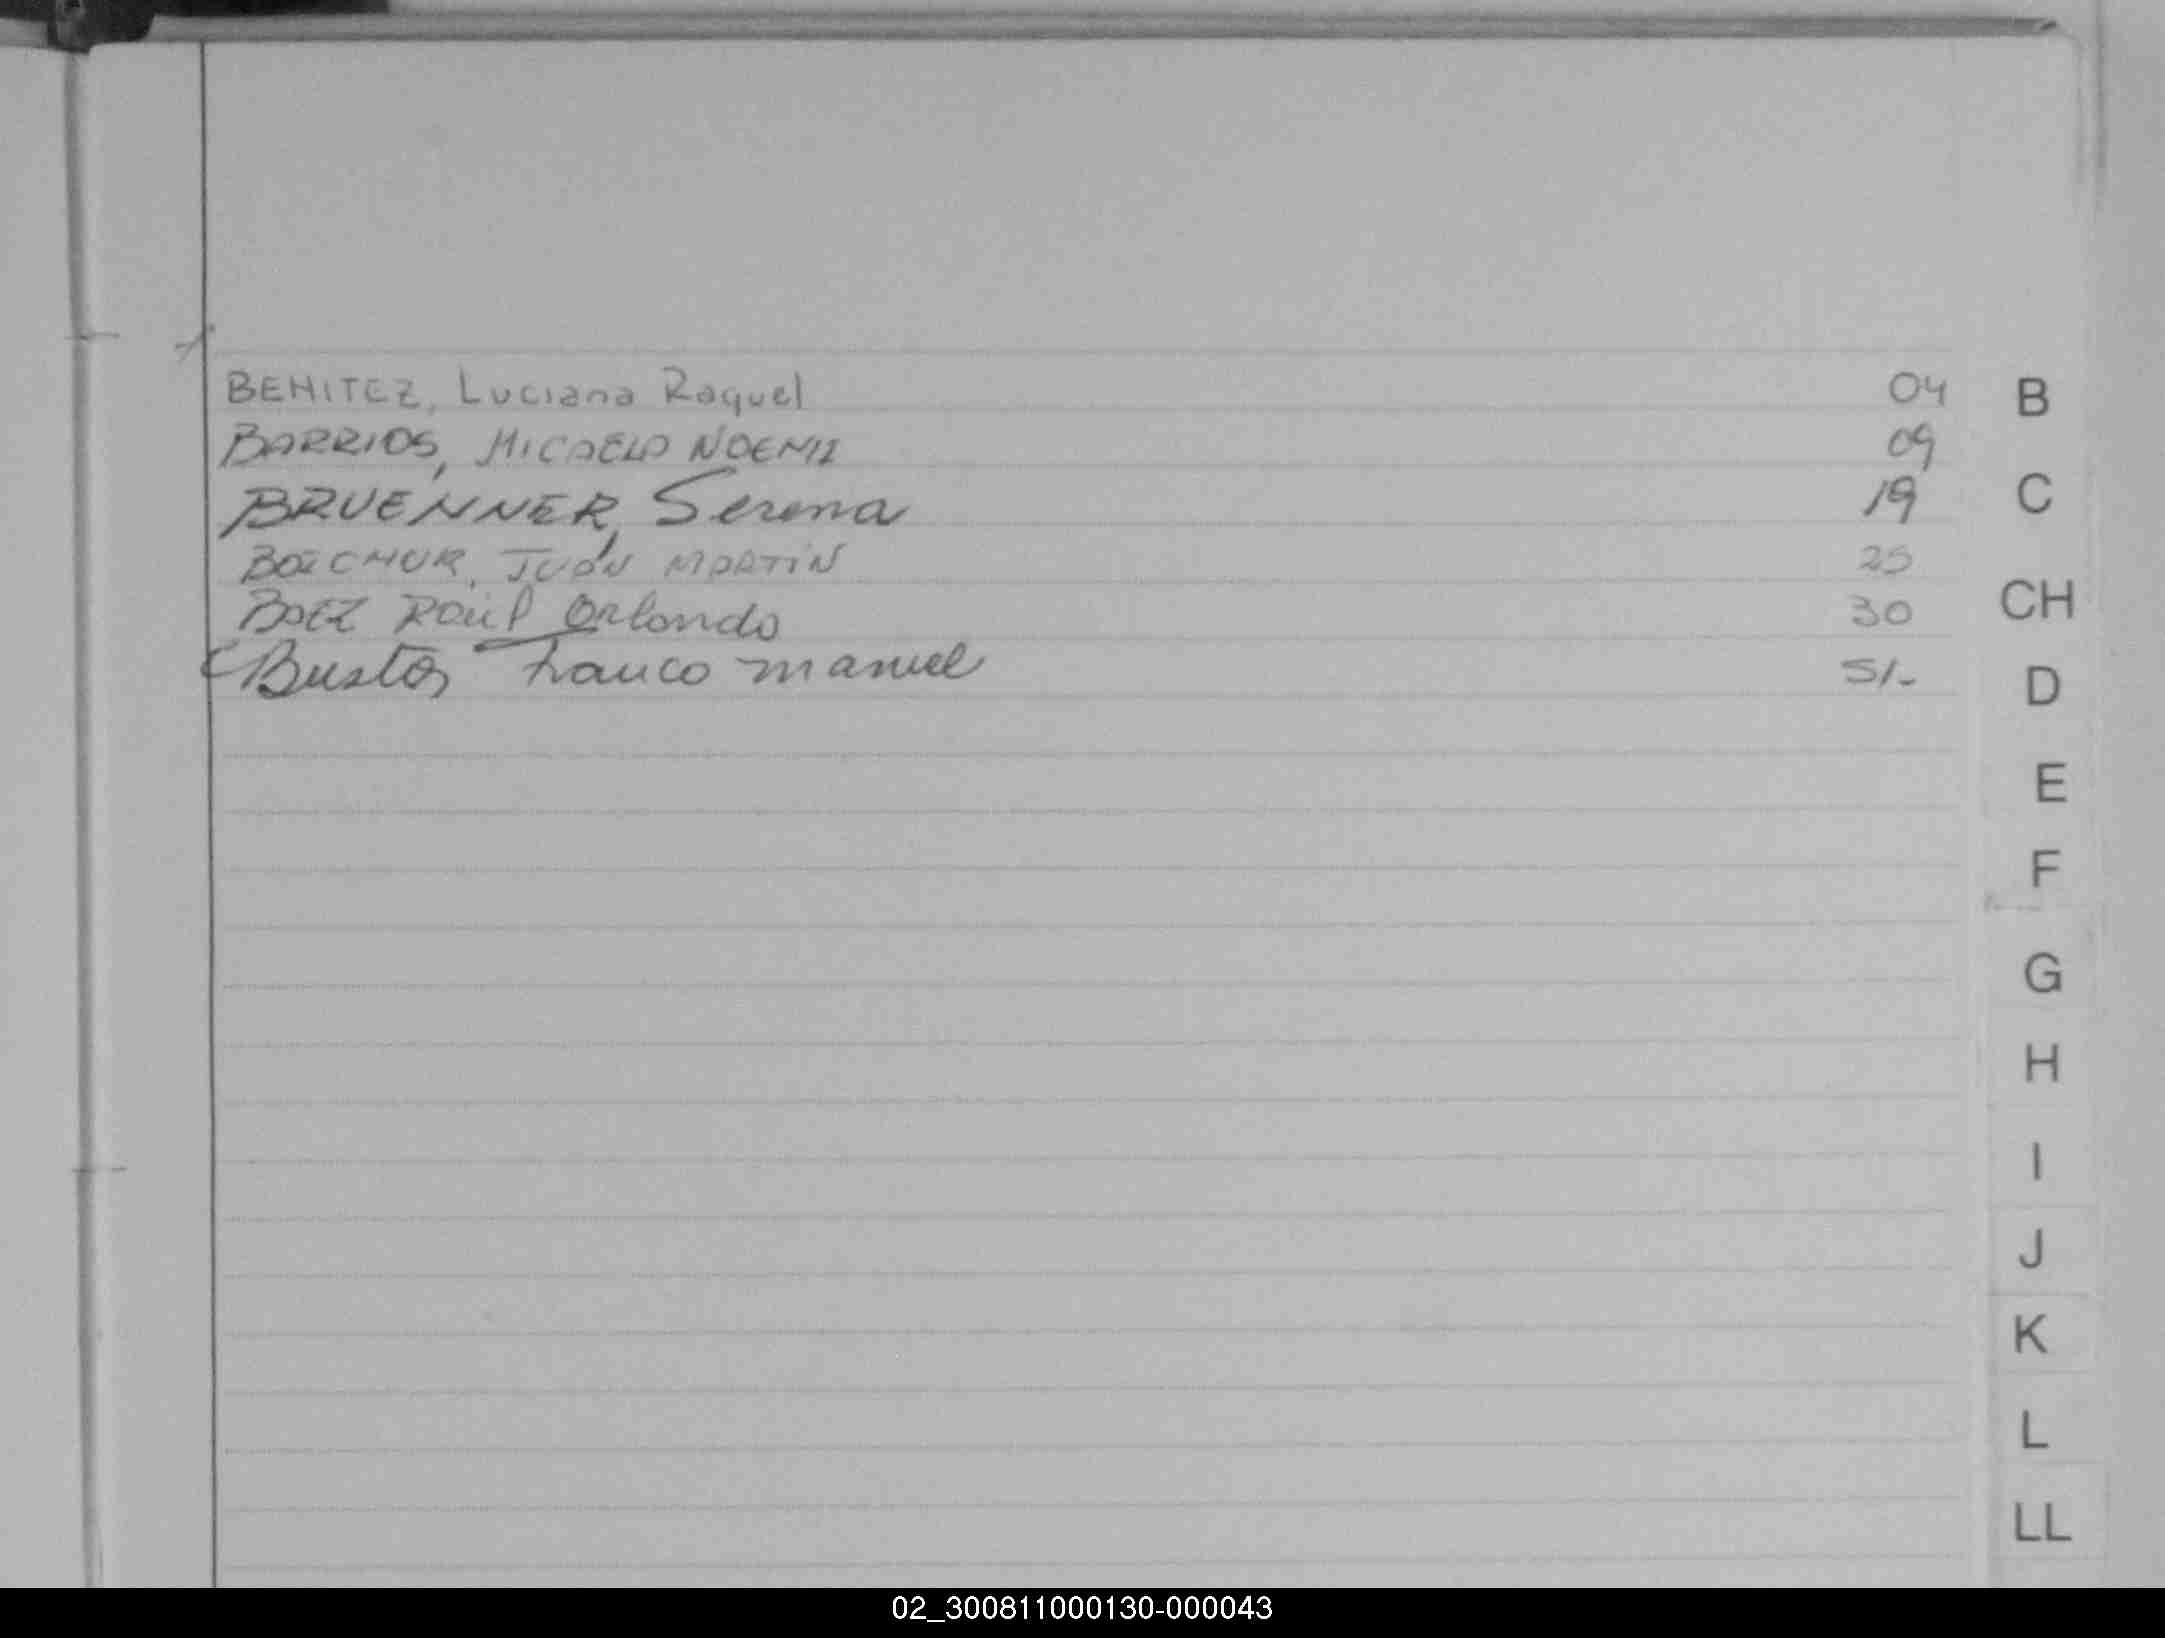 BENITEZ, Luciana Raquel 04 B
BARRIOS, MICAELA NOEMI 09
BRUENNER, Serena 19 C
JUAN MARTIN 25
BAEZ RAÚL Orlando 30 CH
Bustos Franco manuel S/- D
E
F
G
H
I
J
K
L
LL
02_300811000130-000043